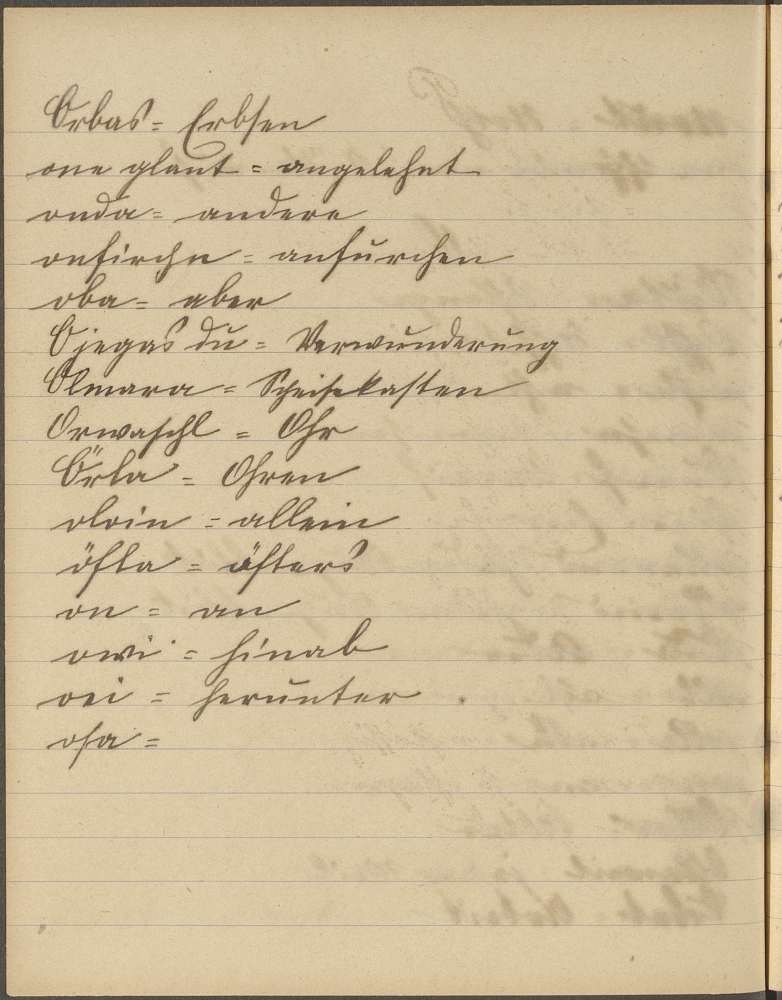 Orbas = Erbsen
one glant = angelehnt
onda = andere
onfircha = anfurchen
oba = aber
Ojegas du = Verwunderung
Olmara = Speisekasten
Orwaschl = Ohr
Örla = Ohren
oloin = allein
öfta = öfters
on = an
owi = hinab
oei = herunter
osa =